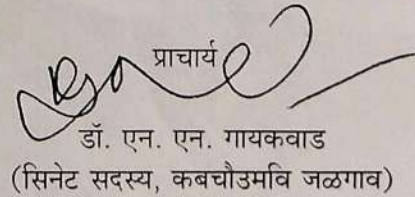 प्राचार्य
डॉ. एन. एन. गायकवाड
(सिनेट सदस्य, कबचौउमवि जळगाव)